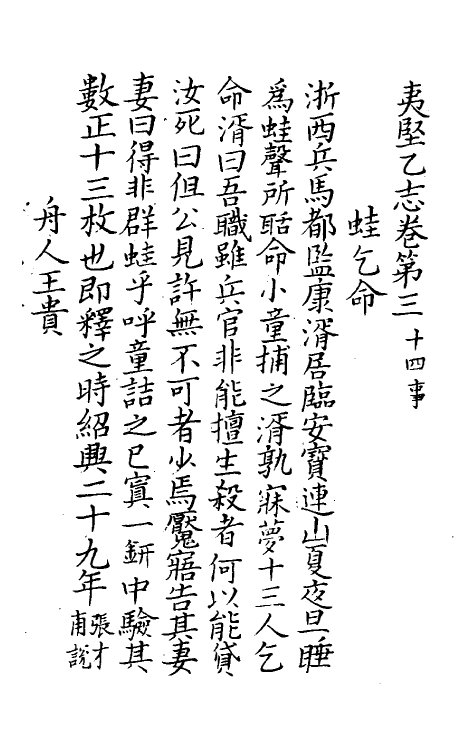 夷堅乙志卷第三 十四事
蛙乞命
浙西兵馬都監康湑居臨安寶連山夏夜旦睡
爲蛙聲所聒命小童捕之湑孰寐夢十三人乞
命湑曰吾職雖兵官非能擅生殺者何以能貸
汝死曰但公見許無不可者少焉魘寤告其妻
妻曰得非群蛙乎呼童詰之已寘一缾中驗其
數正十三枚也即釋之時紹興二十九年張才甫說
舟人王貴